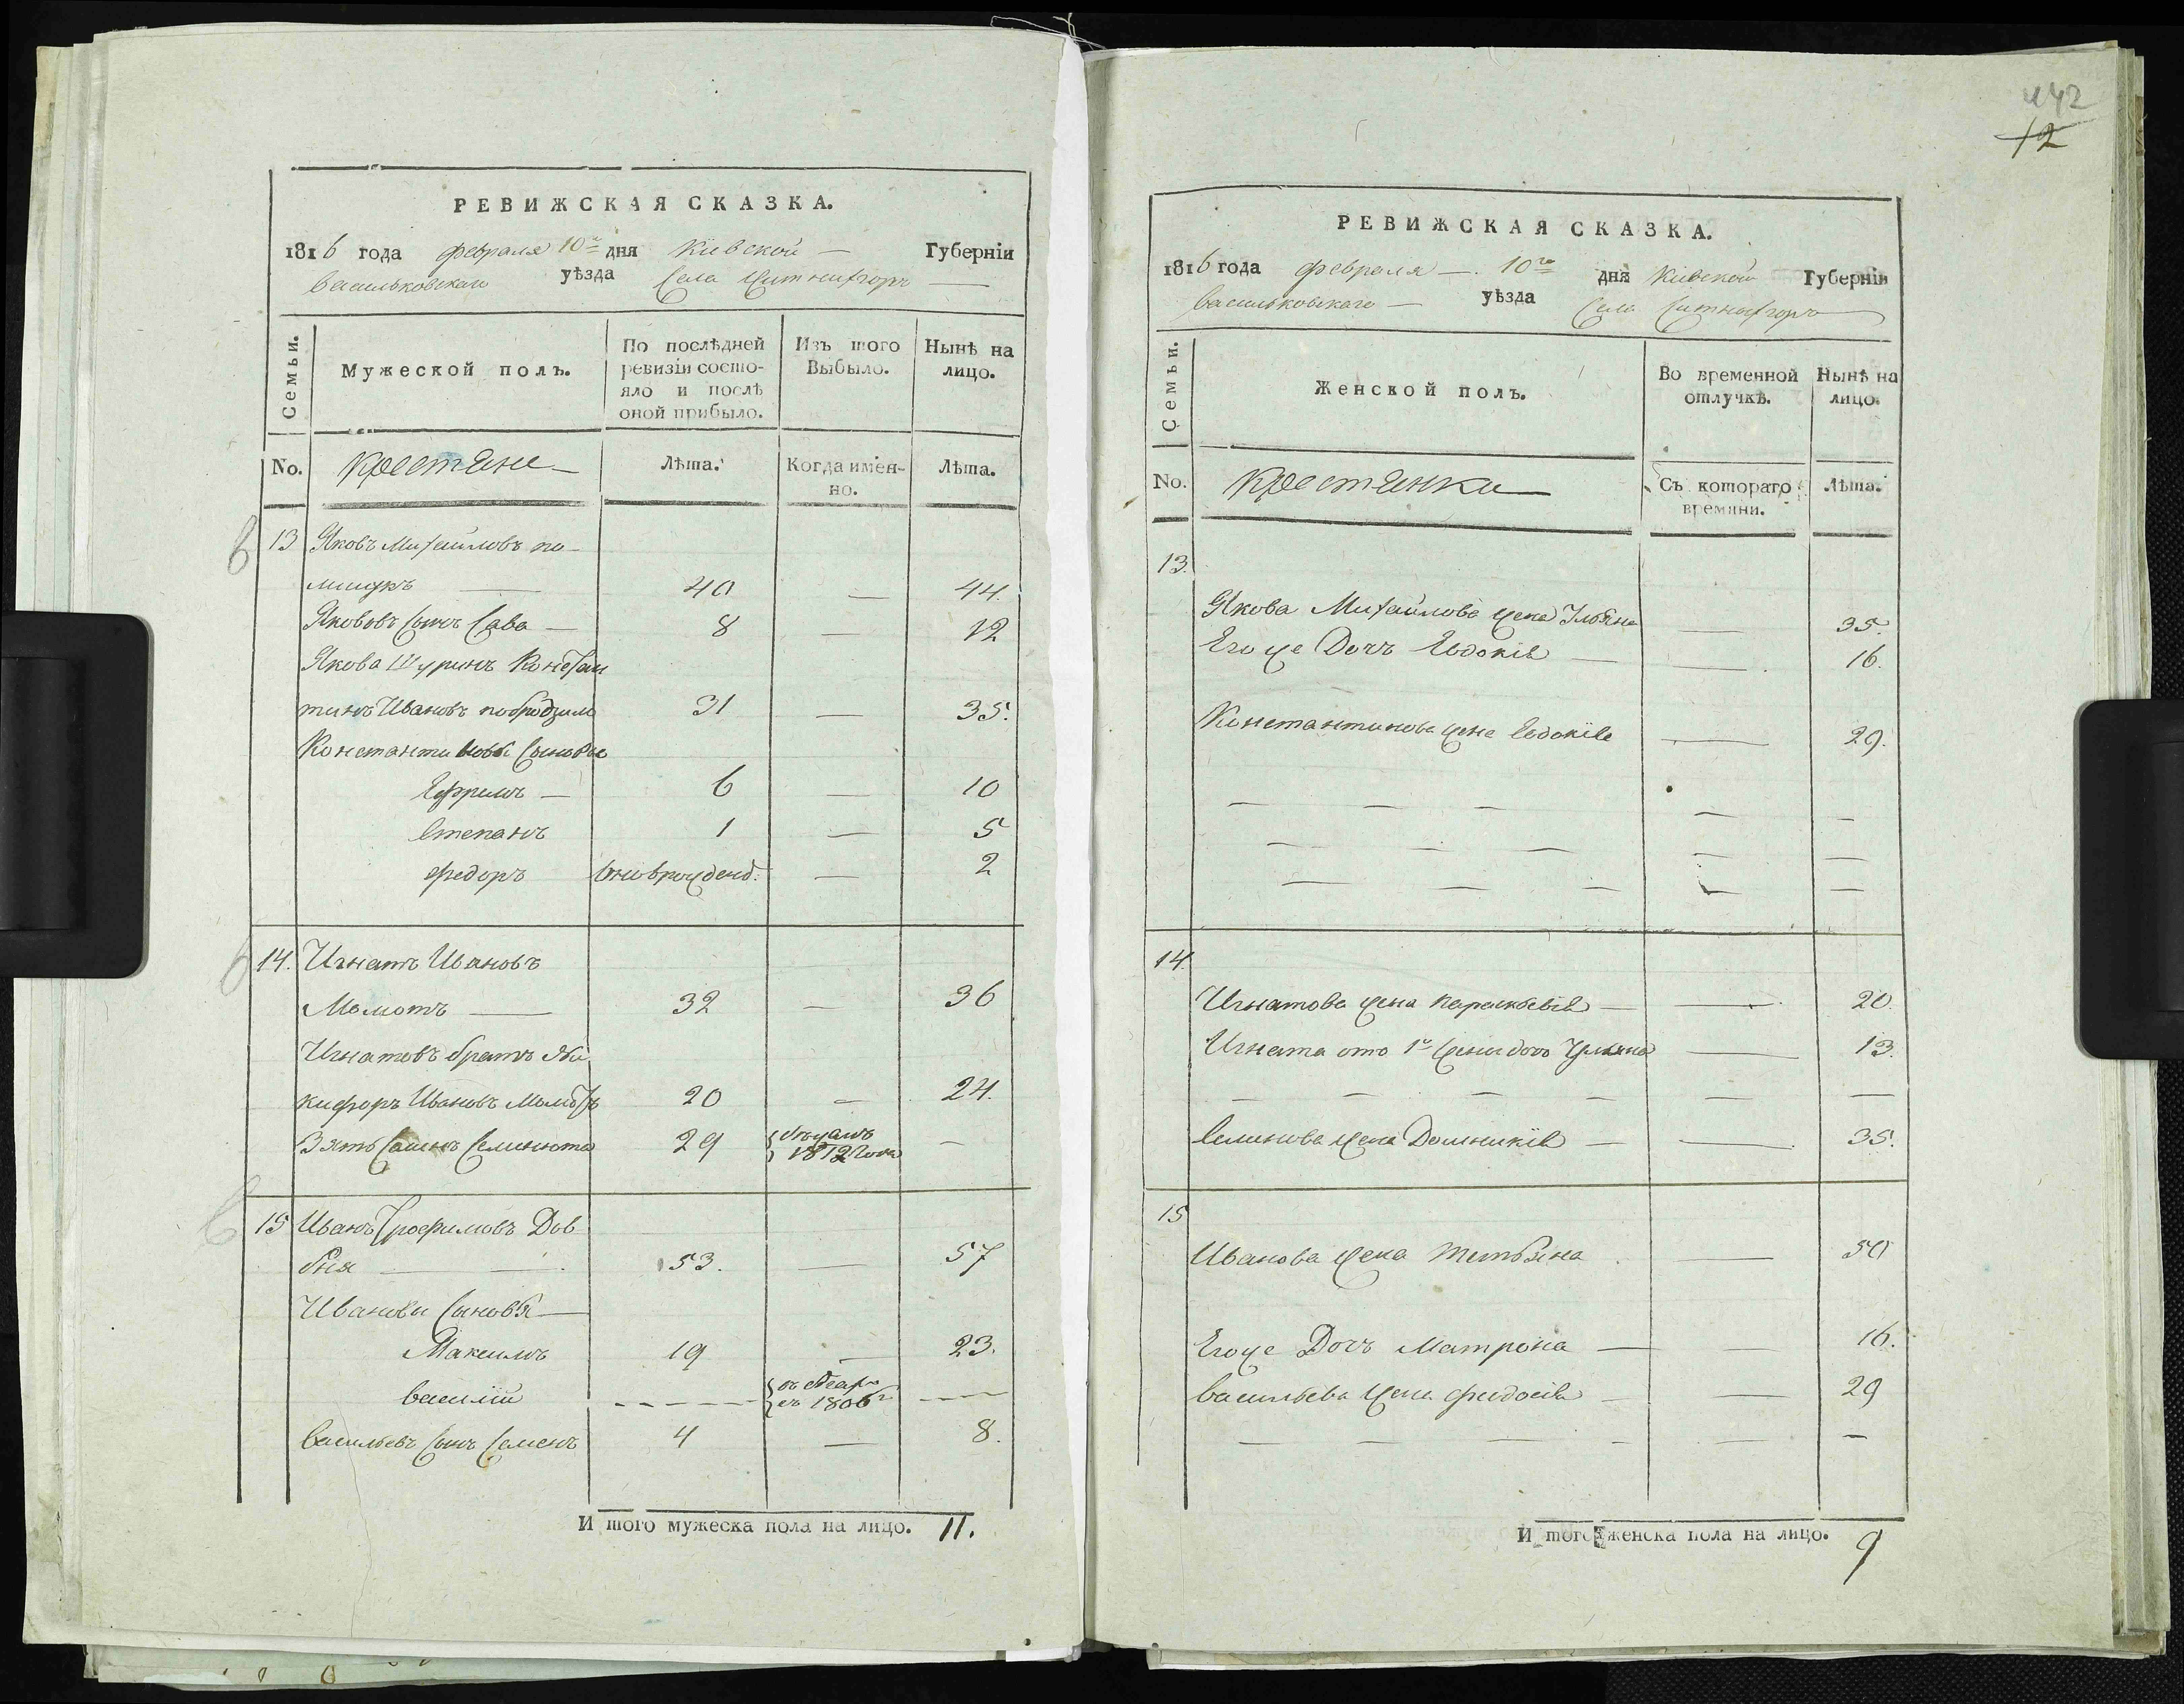 РЕВИЖСКАЯ СКАЗКА.
1816 года февраля 10го дня Киевской Губернїи
васильковскаго уѣзда Села
Семьи.
Мужеской полъ.
По послѣдней
ревизїи состо-
яло и послѣ
оной прибыло.
Изъ того
Выбыло.
Нынѣ на
лицо.
No. крестяне Лѣта. Когда имен-
но. Лѣта.
13 Яковъ Михайловъ по-
лищукъ — 40 — 44.
Яковъ Сынъ Сава — 8 — 12
Якова Шуринъ Констан
тинъ Ивановъ 31 — 35.
Константиновы Сыновья
Ефримъ — 6 — 10
Степанъ 1 — 5
федоръ — 2
14. Игнатъ Ивановъ
Мамотъ — 32 — 36
Игнатовъ братъ Ни
кифоръ Ивановъ 20 — 24.
Зять Семенъ 29 бежалъ
1812 года —
15 Иванъ Трофимовъ Дов
бня — 53. — 57
Иванови Сыновя —
Максимъ 19 — 23.
василїй въ
въ 1806г
васильевъ Сынъ Семенъ 4 — 8.
И того мужеска пола на лицо. 11.
442
12
РЕВИЖСКАЯ СКАЗКА.
1816 года февраля — 10го дня Киевской Губернїи
васильковскаго — уѣзда Села
Семьи.
Женской полъ.
Во временной
отлучкѣ.
Нынѣ на
лицо.
No. крестянки Съ котораго
времяни. Лѣта.
13.
Якова Михайлова жена Ульяна — 35.
Его же Дочъ Евдокия — 16.
Константинова жена Евдокия — 29.
14.
Игнатова жена параскевия — 20.
Игната отъ 1й жены дочь Ульяна — 13.
Семенова жена Домникия — 35.
15
Иванова жена Татьяна — 50
Его же Дочъ Матрона — 16.
васильева жена федосия — 29
И того женска пола на лицо. 9